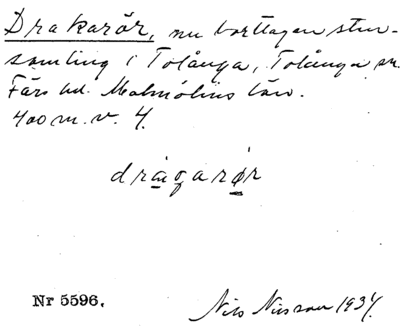 Drakarör, nu borttagen sten-
samling i Tolånga, Tolånga sn.
Färs hd. Malmöhus län.
400 m. v. 4.
drāgarør
Nr 5596.
Nils Nilsson 1934.